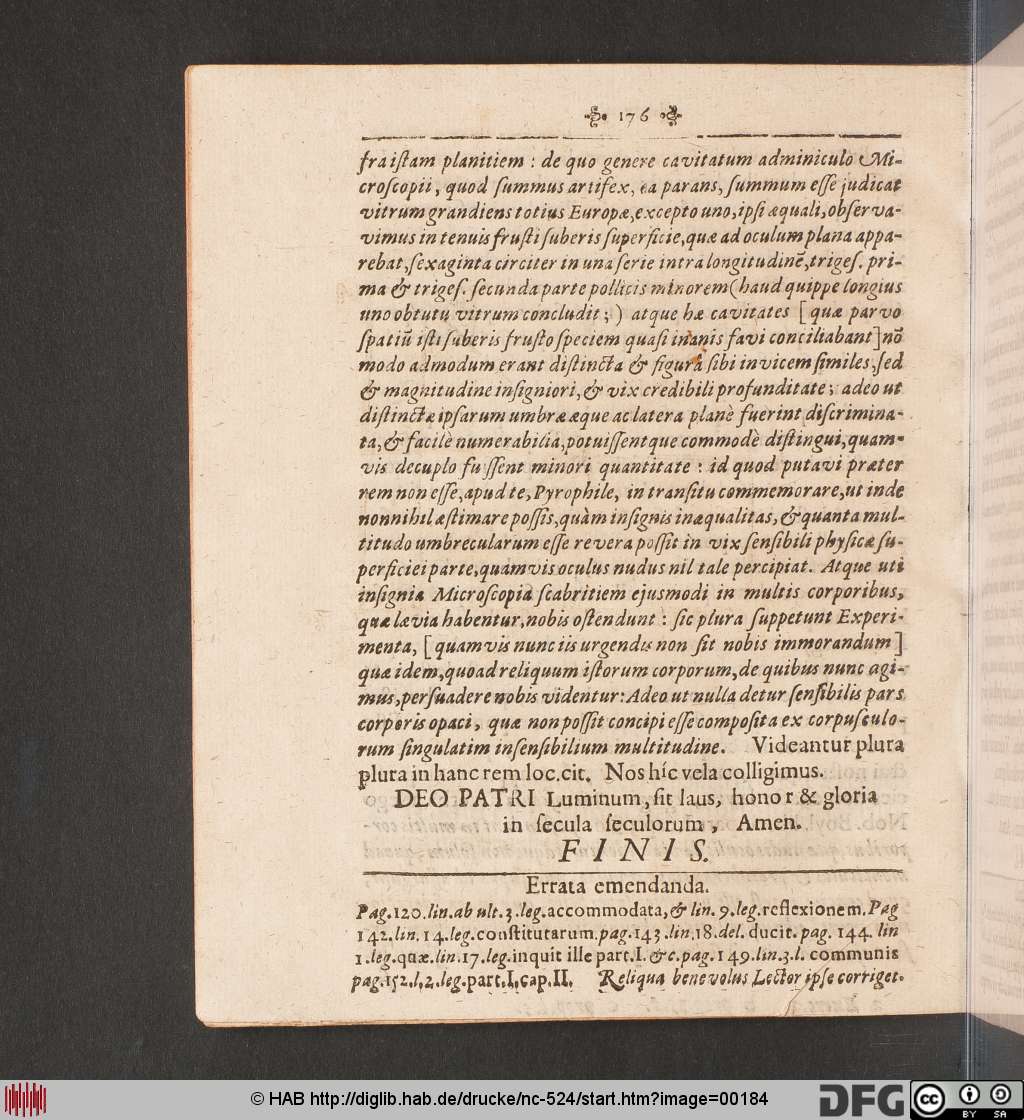 176
fra iſtam planitiem : de quo genere cavitatum adminiculo Mi-
croſcopii, quod ſummus artifex, ea parans, ſummum eſſe judicat
vitrum grandiens totius Europæ, excepto uno, ipſi æquali, obſerva-
vimus in tenuis fruſti ſuberis ſuperficie, quæ ad oculum plana appa-
rebat, ſexaginta circiter in una ſerie intra longitudinē, trigeſ. pri-
ma & trigeſ. ſecunda parte pollicis minorem (haud quippe longius
uno obtutu vitrum concludit ; ) atque hæ cavitates [ quæ parvo
ſpatiū iſti ſuberis fruſto ſpeciem quaſi inanis favi conciliabant ] nō
modo admodum erant diſtinctæ & figurâ ſibi invicem ſimiles, ſed
& magnitudine inſigniori, & vix credibili profunditate ; adeo ut
diſtinctæ ipſarum umbræ æque ac latera planè fuerint diſcrimina-
ta, & facilè numerabilia, potuiſſentque commodè diſtingui, quam-
vis decuplo fuiſſent minori quantitate : id quod putavi præter
rem non eſſe, apud te, Pyrophile, in tranſitu commemorare, ut inde
nonnihil æſtimare poſſis, quàm inſignis inæqualitas, & quanta mul-
titudo umbrecularum eſſe revera poſſit in vix ſenſibili phyſicæ ſu-
perficiei parte, quamvis oculus nudus nil tale percipiat. Atque uti
inſignia Microſcopia ſcabritiem ejuſmodi in multis corporibus,
quæ lævia habentur, nobis oſtendunt : ſic plura ſuppetunt Experi-
menta, [ quamvis nunc iis urgendis non ſit nobis immorandum ]
quæ idem, quoad reliquum iſtorum corporum, de quibus nunc agi-
mus, perſuadere nobis videntur: Adeo ut nulla detur ſenſibilis pars
corporis opaci, quæ non poſſit concipi eſſe compoſita ex corpuſculo-
rum ſingulatim inſenſibilium multitudine. Videantur plura
plura in hanc rem loc. cit. Nos híc vela colligimus.
DEO PATRI Luminum, ſit laus, honor & gloria
in ſecula ſeculorum, Amen.
FINIS.
Errata emendanda.
Pag. 120. lin. ab ult. 3. leg. accommodata, & lin. 9. leg. reflexionem. Pag
142. lin. 14. leg. conſtitutarum. pag. 143. lin. 18. del. ducit. pag. 144. lin
1. leg. quæ. lin. 17. leg. inquit ille part. I. &c. pag. 149. lin. 3. l. communis
pag. 152. l. 2. leg. part. I. cap. II. Reliqua benevolus Lector ipſe corriget.
© HAB http://diglib.hab.de/drucke/nc-524/start.htm?image=00184
DFG
cc BY SA